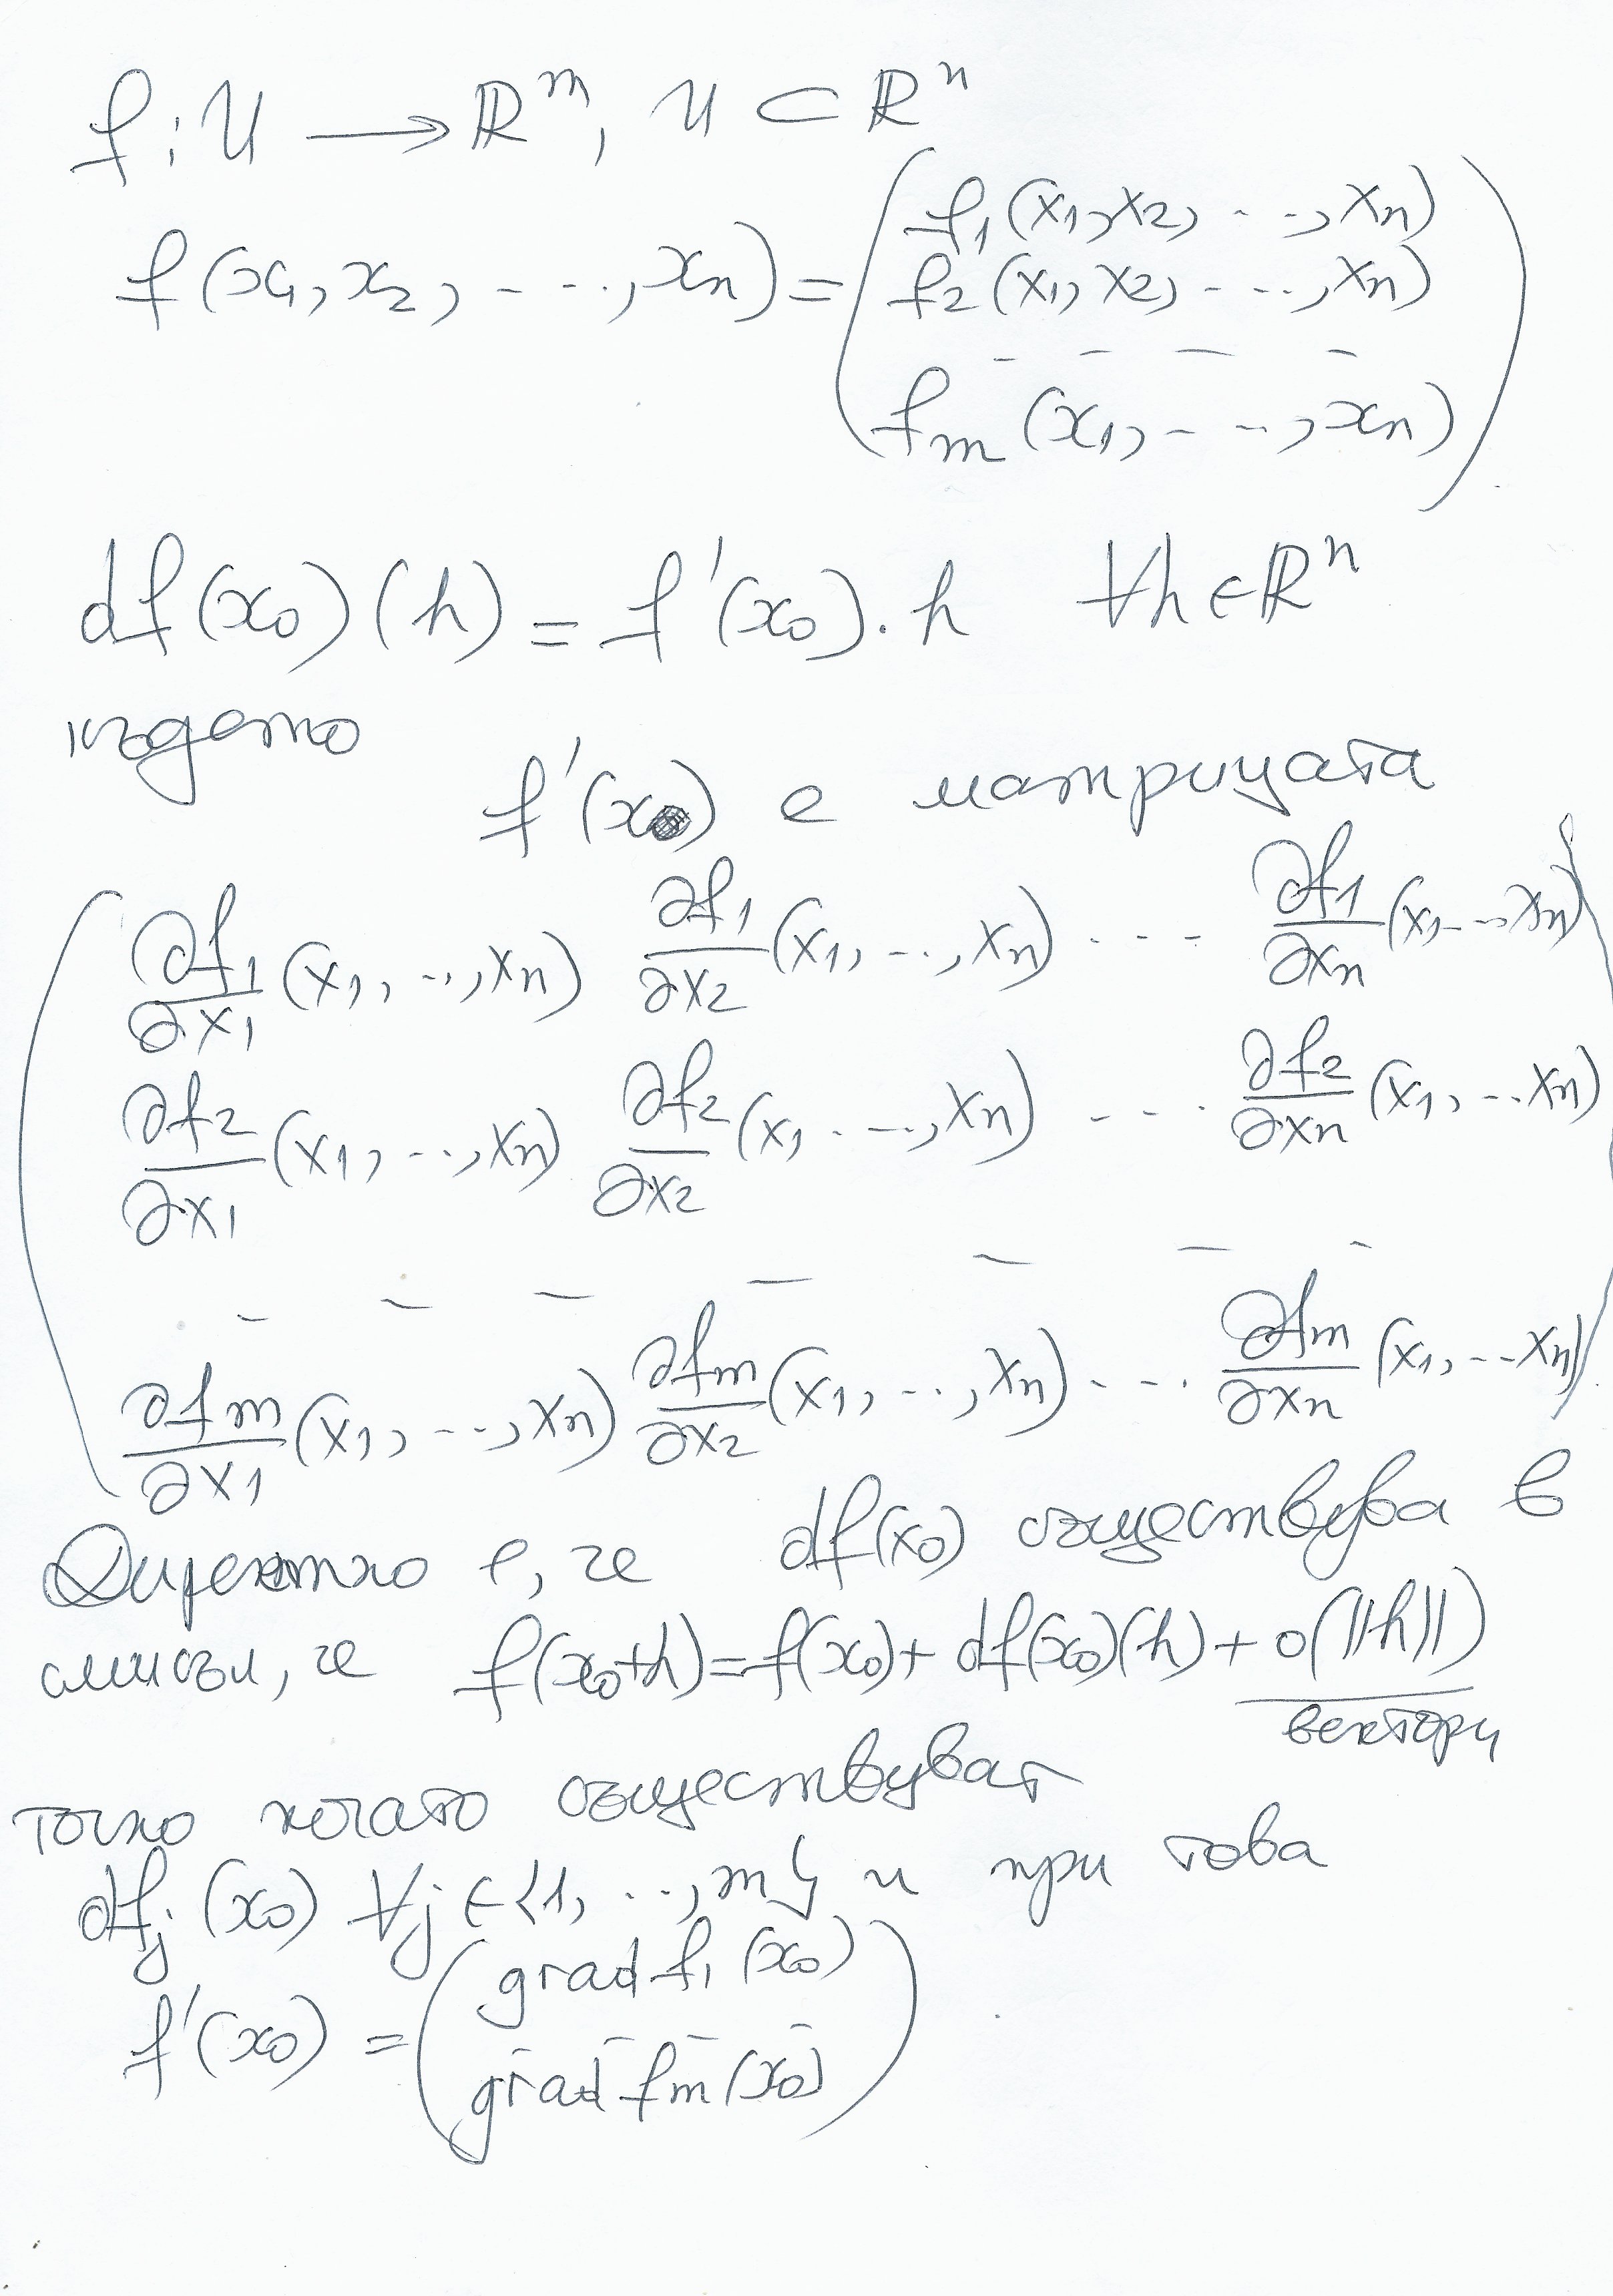 f : U ⟶ ℝᵐ, U ⊂ ℝⁿ
f(x₁, x₂, - - .., xₙ) = ( f₁(x₁, x₂, - - .., xₙ)
f₂(x₁, x₂, - - .., xₙ)
– – – –
fₘ(x₁, - - .., xₙ) )
df(x₀)(h) = f'(x₀).h ∀h∈ℝⁿ
където
f'(x₀) е матрицата
( ∂f₁/∂x₁ (x₁, .., xₙ) ∂f₁/∂x₂ (x₁, .., xₙ) - - - ∂f₁/∂xₙ (x₁, .., xₙ)
∂f₂/∂x₁ (x₁, .., xₙ) ∂f₂/∂x₂ (x₁, .., xₙ) - - - ∂f₂/∂xₙ (x₁, .. xₙ)
– – – – – – –
∂fₘ/∂x₁ (x₁, .., xₙ) ∂fₘ/∂x₂ (x₁, .., xₙ) - - - ∂fₘ/∂xₙ (x₁, .. xₙ) )
Директно е, че df(x₀) съществува в
смисъл, че f(x₀+h)=f(x₀)+ df(x₀)(h)+ o(||h||)
вектори
точно когато съществуват
dfⱼ(x₀) ∀j ∈ {1, .., m} и при това
f'(x₀) = ( grad f₁(x₀)
– – –
grad fₘ(x₀) )